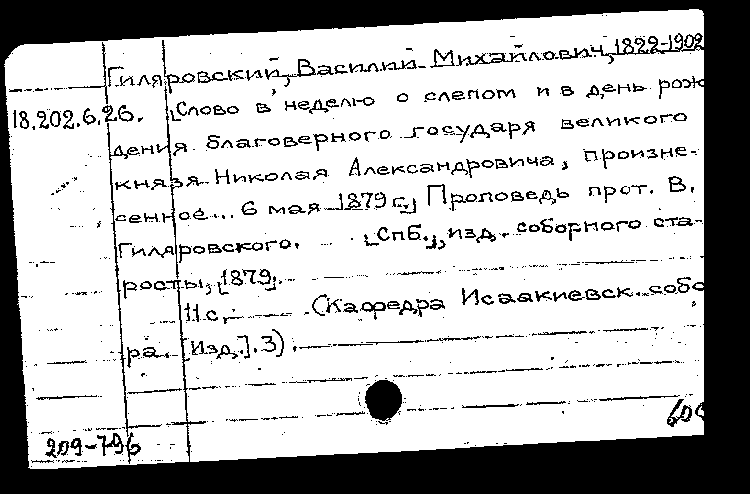 Гиляровский, Василий Михайлович, 1822-1902
18.202.6.26. [Слово в неделю о слепом и в день рож
дения благоверного государя великого
князя Николая Александровича, произне-
сенное... 6 мая 1879 г.] Проповедь прот. В.
Гиляровского. [СПб.], изд. соборного ста-
росты, [1879].
11с. (Кафедра Исаакиевск. собо
ра. [Изд.]. 3).
209-796